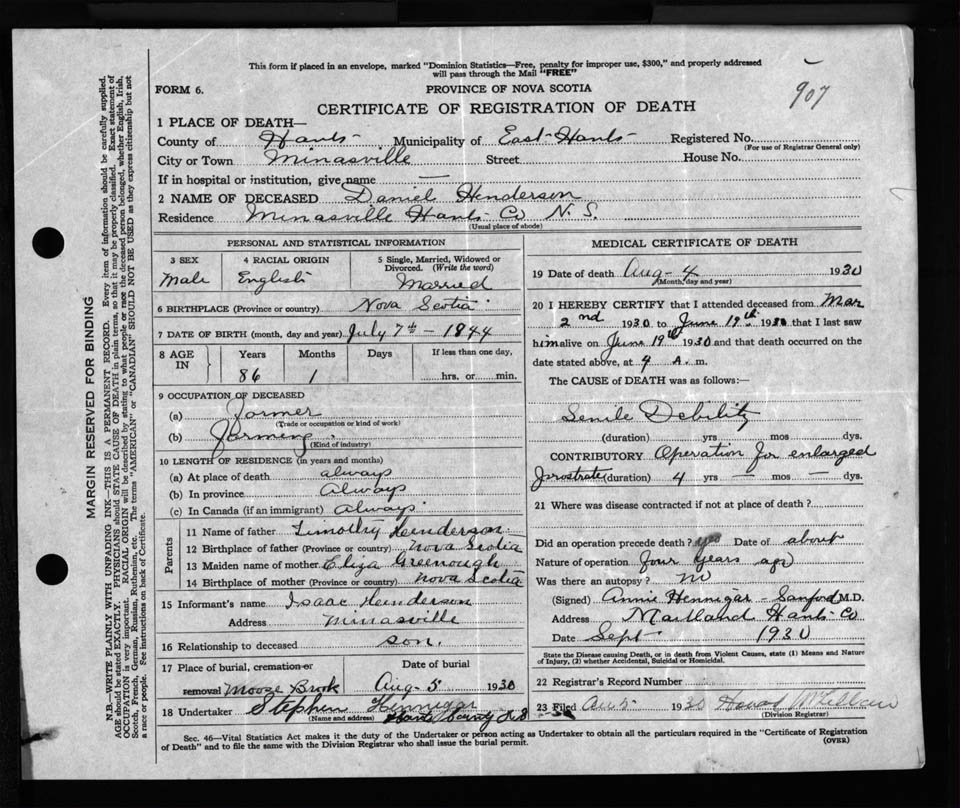 This form if placed in an envelope, marked "Dominion Statistics—Free, penalty for improper use, $300," and properly addressed
will pass through the Mail "FREE"
907
FORM 6.
PROVINCE OF NOVA SCOTIA
CERTIFICATE OF REGISTRATION OF DEATH
1 PLACE OF DEATH—
County of Hants Municipality of East Hants Registered No.
(For use of Registrar General only)
City or Town Minasville Street House No.
If in hospital or institution, give name —
2 NAME OF DECEASED Daniel Henderson
Residence Minasville Hants Co N. S.
(Usual place of abode)
PERSONAL AND STATISTICAL INFORMATION
3 SEX 4 RACIAL ORIGIN 5 Single, Married, Widowed or
Divorced. (Write the word)
Male English Married
6 BIRTHPLACE (Province or country) Nova Scotia
7 DATE OF BIRTH (month, day and year) July 7th – 1844
8 AGE IN Years Months Days If less than one day,
86 1 hrs. or min.
9 OCCUPATION OF DECEASED
(a) Farmer
(Trade or occupation or kind of work)
(b) Farming
(Kind of industry)
10 LENGTH OF RESIDENCE (in years and months)
(a) At place of death always
(b) In province Always
(c) In Canada (if an immigrant) Always
Parents
11 Name of father Timothy Henderson
12 Birthplace of father (Province or country) Nova Scotia
13 Maiden name of mother Eliza Greenough
14 Birthplace of mother (Province or country) Nova Scotia
15 Informant's name Isaac Henderson
Address Minasville
16 Relationship to deceased son.
17 Place of burial, cremation or Date of burial
removal Moose Brook Aug 5 1930
18 Undertaker Stephen Hennigar
(Name and address) Hants County N S
MEDICAL CERTIFICATE OF DEATH
19 Date of death Aug – 4 1930
(Month, day and year)
20 I HEREBY CERTIFY that I attended deceased from Mar
2nd 1930 to June 19th 1930 that I last saw
him alive on June 19th 1930 and that death occurred on the
date stated above, at 9 A. m.
The CAUSE of DEATH was as follows:—
Senile Debility
(duration) yrs mos dys.
CONTRIBUTORY Operation for enlarged
prostrate (duration) 4 yrs — mos — dys.
21 Where was disease contracted if not at place of death?
Did an operation precede death? yes Date of about
Nature of operation four years ago
Was there an autopsy? no
(Signed) Annie Hennigar – Sanford M.D.
Address Maitland Hants Co
Date Sept 1930
State the Disease causing Death, or in death from Violent Causes, state (1) Means and Nature
of Injury, (2) whether Accidental, Suicidal or Homicidal.
22 Registrar's Record Number
23 Filed Aug 5 1930
(Division Registrar)
Sec. 46—Vital Statistics Act makes it the duty of the Undertaker or person acting as Undertaker to obtain all the particulars required in the "Certificate of Registration
of Death" and to file the same with the Division Registrar who shall issue the burial permit.
(OVER)
MARGIN RESERVED FOR BINDING
N.B.—WRITE PLAINLY WITH UNFADING INK—THIS IS A PERMANENT RECORD. Every item of information should be carefully supplied.
AGE should be stated EXACTLY. PHYSICIANS should STATE CAUSE OF DEATH in plain terms, so that it may be properly classified. Exact statement of
OCCUPATION is very important. RACIAL ORIGIN will be described by stating to what people or race the deceased person belonged, whether English, Irish,
Scotch, French, German, Russian, Ruthenian, etc. The terms "AMERICAN" or "CANADIAN" SHOULD NOT BE USED as they express citizenship but not
a race or people. See instructions on back of Certificate.